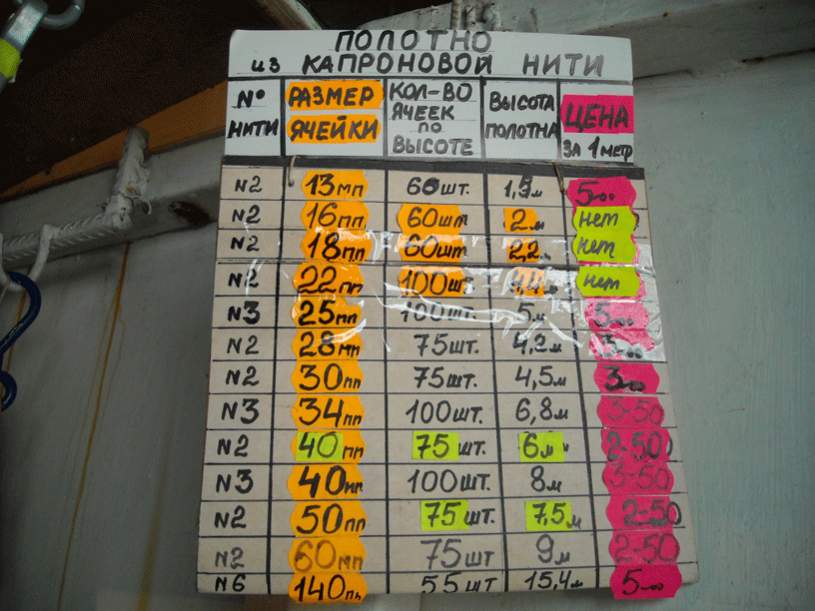 ПОЛОТНО
из КАПРОНОВОЙ НИТИ
№ НИТИ РАЗМЕР ЯЧЕЙКИ КОЛ-ВО ЯЧЕЕК ПО ВЫСОТЕ ВЫСОТА ПОЛОТНА ЦЕНА ЗА 1 МЕТР
N2 13мм 60шт. 5-00
N2 16мм 60шт 2м нет
N2 18мм 60шт 2,2м нет
N2 22мм 100шт. нет
N3 25мм 100шт. 5м 5-00
N2 28мм 75шт. 4,2м 3-00
N2 30мм 75шт. 4,5м 3-00
N3 34мм 100шт. 6,8м 3-50
N2 40мм 75шт. 6м 2-50
N3 40мм 100шт. 8м 3-50
N2 50мм 75шт. 7,5м 2-50
N2 60мм 75шт 9м 2-50
N6 140мм 55шт 15,4м 5-00